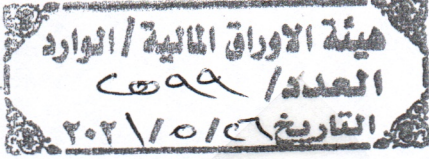 هيئة الاوراق المالية / الوارد
العدد/ ٩٩
التاريخ ٢٠٢١/٥/٢٦